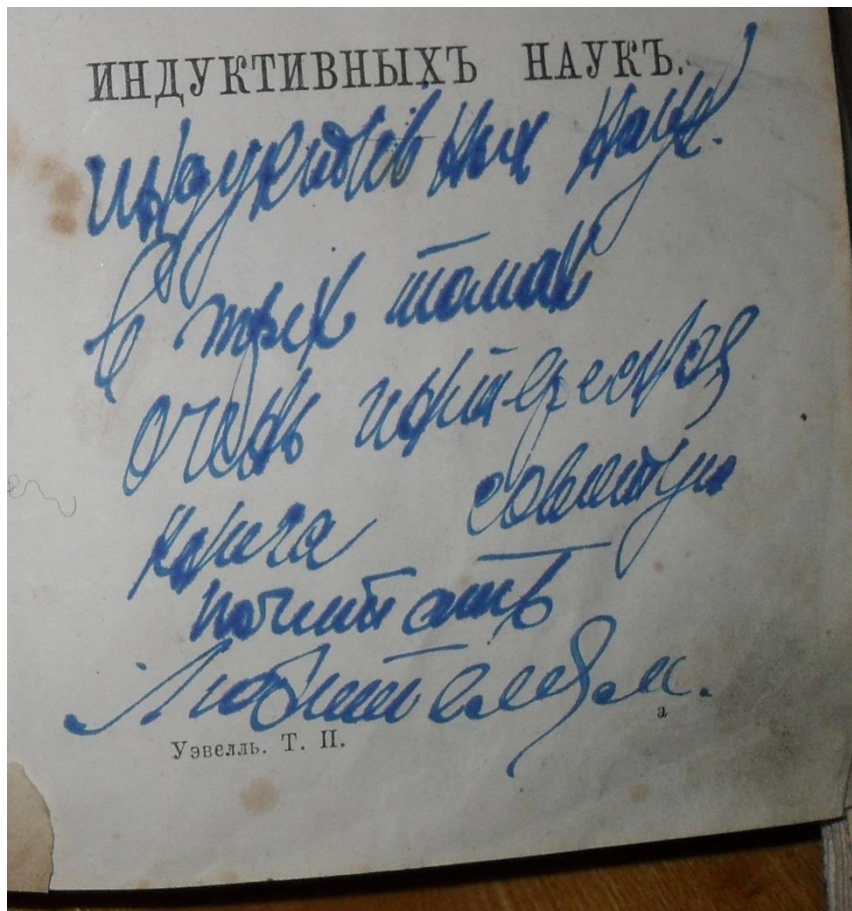 ИНДУКТИВНЫХЪ НАУКЪ.
индуктивных наук.
в трех томах
очень интересная
книга советую
почитать
Любителям.
Уэвелль. Т. II.
а